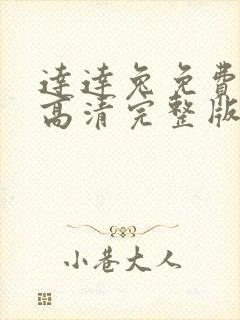 逹逹兔免費
高清完整版
小巷大人